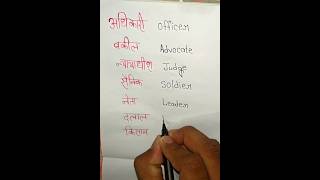 अधिकारी Officer
वकील Advocate
न्यायाधीश Judge
सैनिक Soldier
नेता Leader
दलाल
किसान